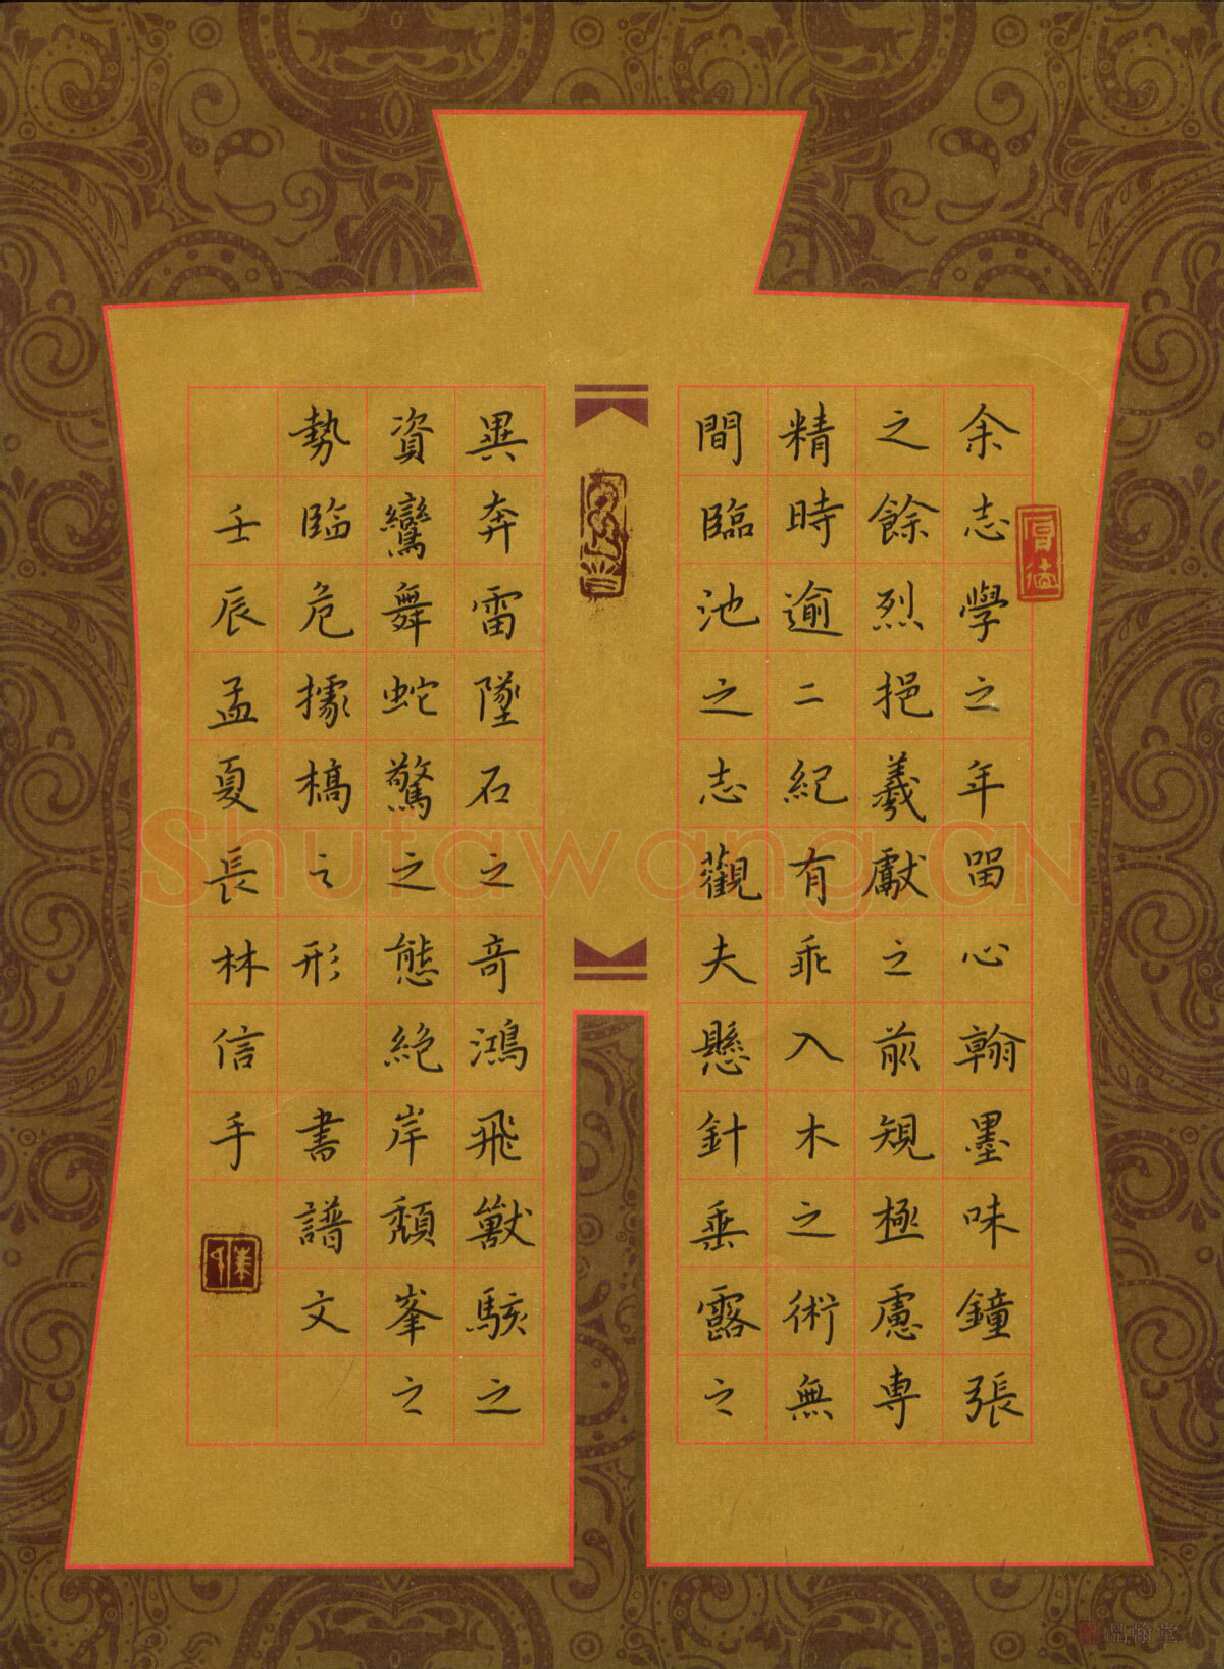 余志學之年畱心翰墨味鐘張
之餘烈挹羲獻之前規極慮専
精時逾二紀有乖入木之術無
間臨池之志觀夫懸針垂露之
異奔雷墜石之奇鴻飛獸駭之
資鸞舞蛇驚之態絶岸頽峯之
勢臨危據槁之形 書譜文
壬辰孟夏長林信手
Shutawang.CN